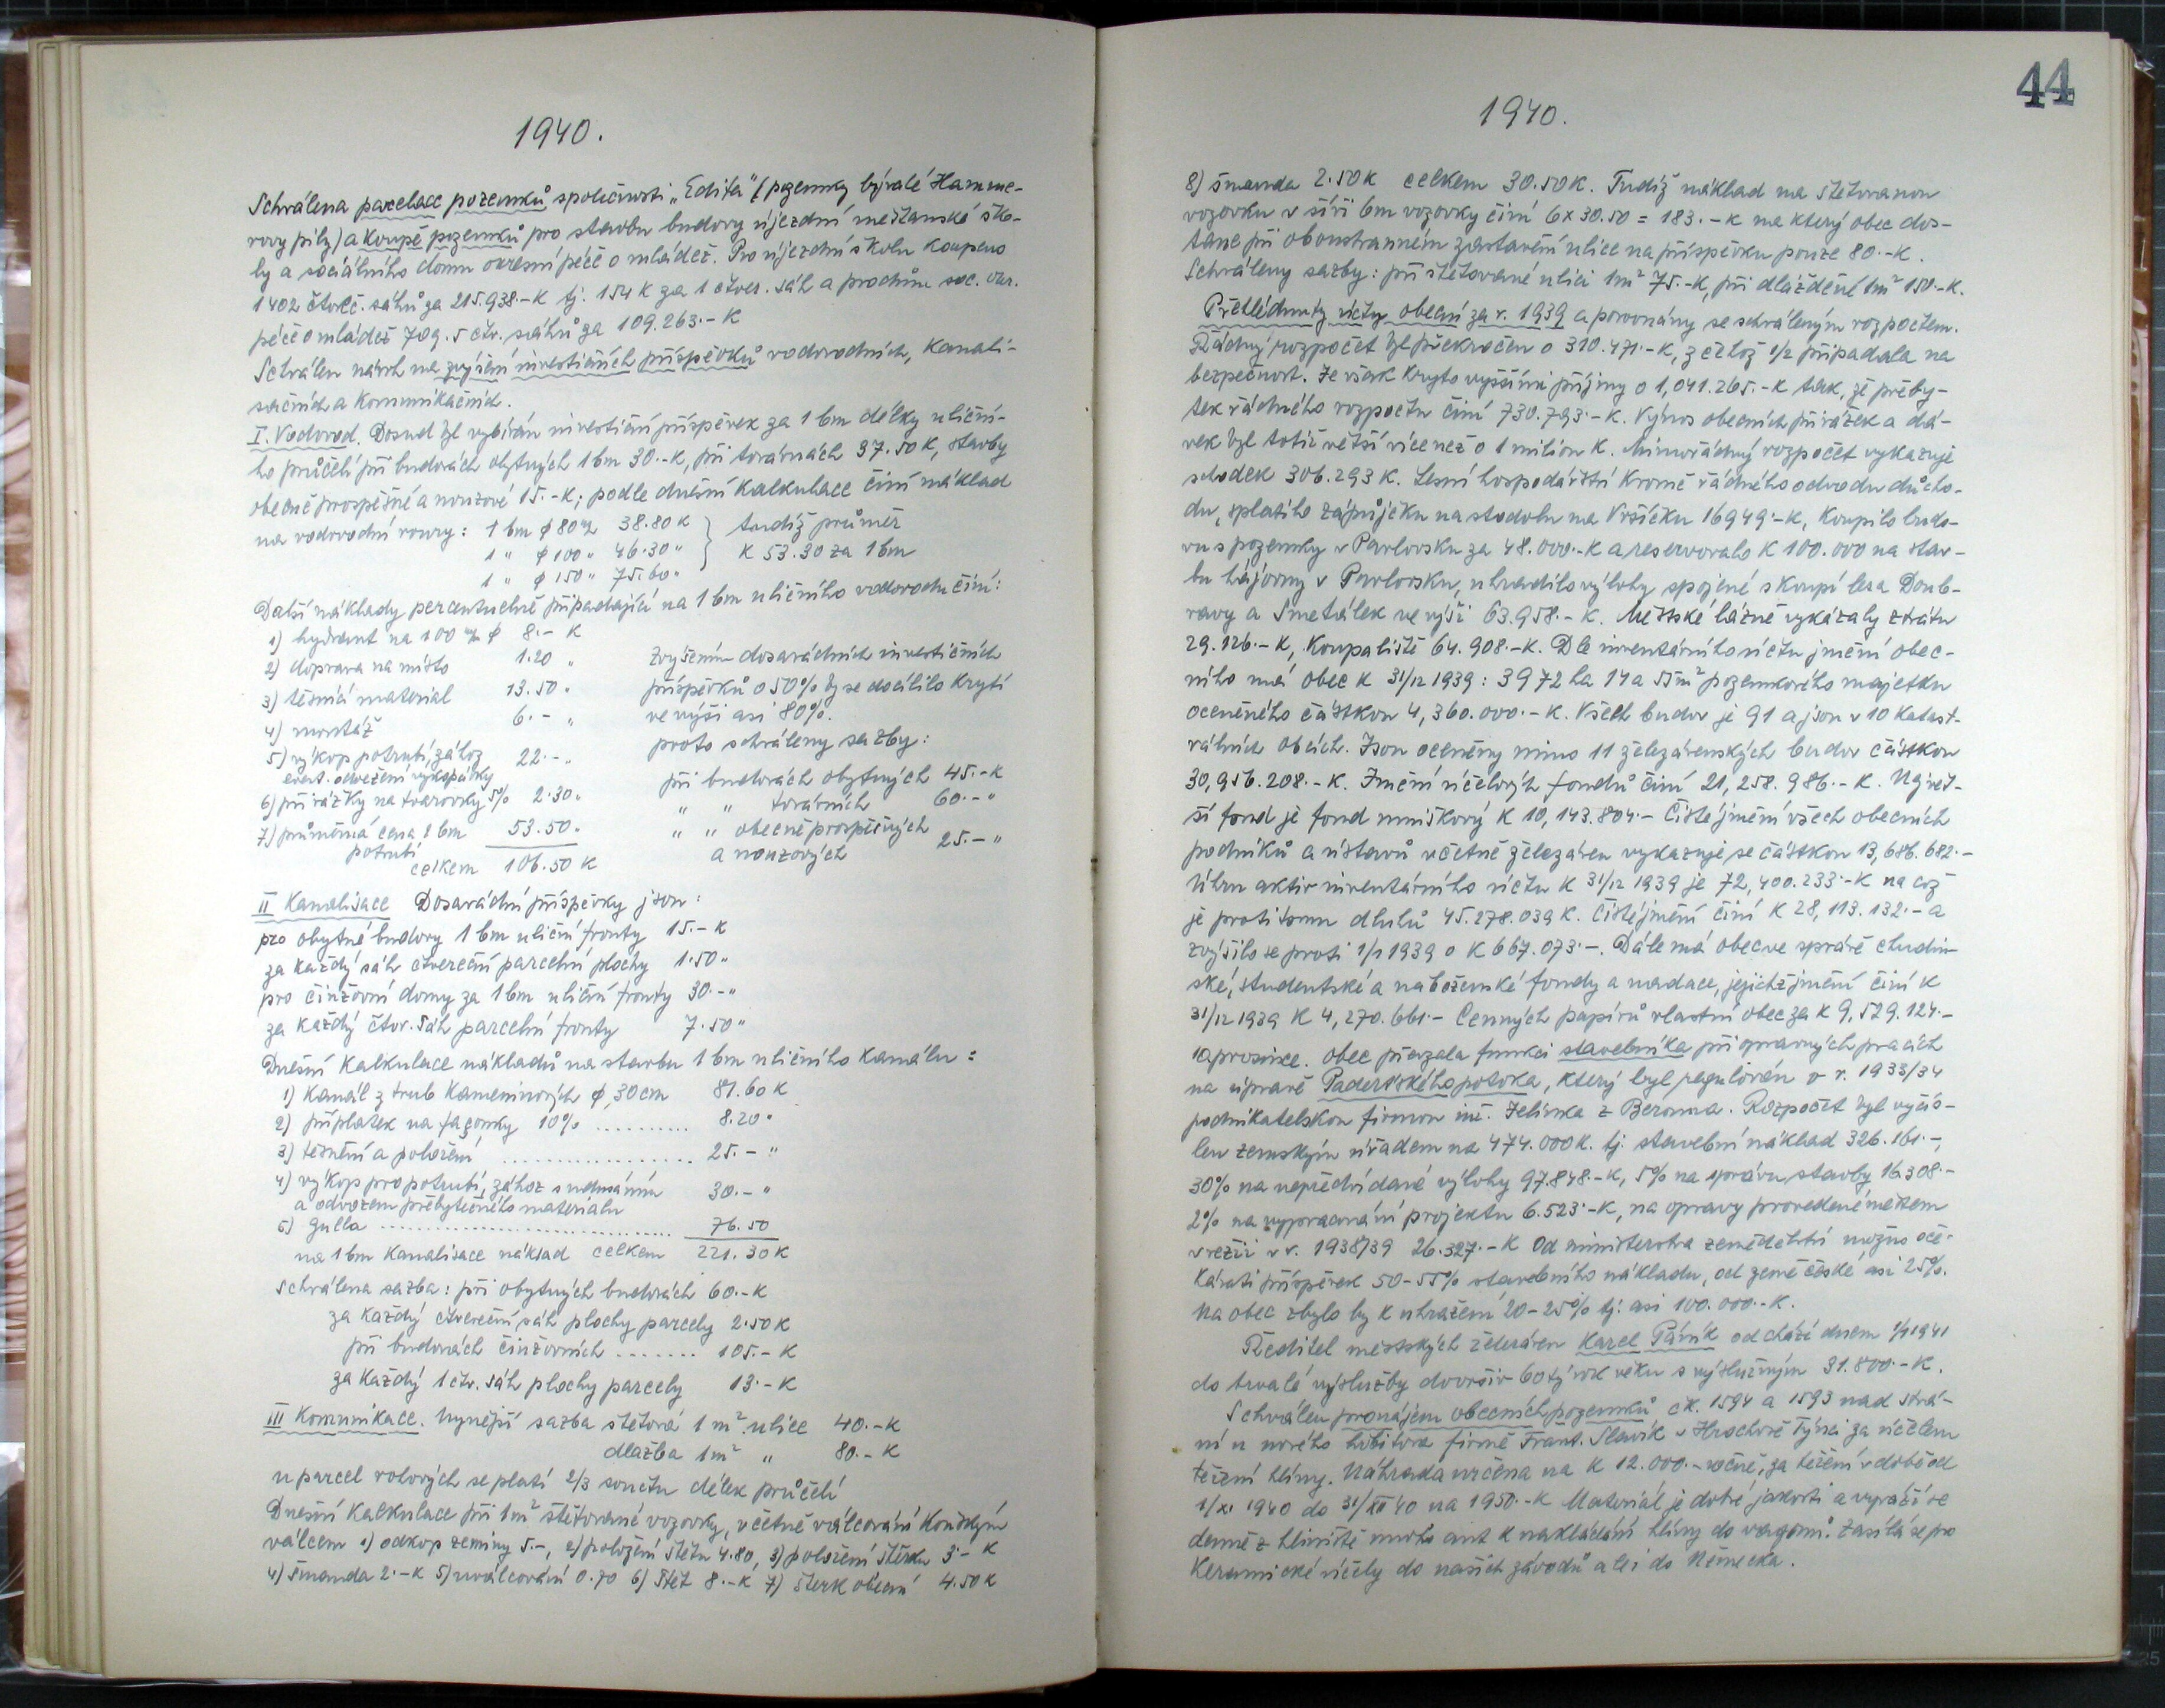 1940.
Schválena parcelace pozemků společnosti „Edita" (pozemky bývalé Hamme-
rovy pily) a koupě pozemků pro stavbu budovy újezdní měšťanské ško-
ly a sociálního domu okresní péče o mládež. Pro újezdní školu koupeno
1402 čtveč. sáhů za 215.938.-K tj. 154 K za 1 čtver. sáh a pro dům soc. okr.
péče o mládež 709.5 čtv. sáhů za 109.263.-K
Schválen návrh na zvýšení investičních příspěvků vodovodních, kanali-
sačních a komunikačních.
I. Vodovod. Dosud byl vybírán investiční příspěvek za 1 bm délky uliční-
ho průčelí při budovách obytných 1 bm 30.-K, při továrnách 37.50 K, stavby
obecně prospěšné a nouzové 15.-K; podle dnešní kalkulace činí náklad
na vodovodní roury: 1 bm ϕ 80 m/m 38.80 K } tudíž průměr
1 " ϕ 100 " 46.30 " } K 53.30 za 1 bm
1 " ϕ 150 " 75.60 "
Další náklady percentuelně připadající na 1 bm uličního vodovodu činí:
1) hydrant na 100 m/m ϕ 8.- K
2) doprava na místo 1.20 " Zvýšením dosavadních investičních
3) těsnící material 13.50 " příspěvků o 50% by se docílilo krytí
4) montáž 6.- " ve výši asi 80%.
5) výkop potrubí, zához 22.- " proto schváleny sazby:
event. odvežení výkopávky při budovách obytných 45.-K
6) přirážky na tvarovky 5% 2.30 " " " továrních 60.- "
7) průměrná cena 1 bm 53.50 " " " obecně prospěšných
potrubí a nouzových 25.- "
celkem 106.50 K
II Kanalisace Dosavadní příspěvky jsou:
pro obytné budovy 1 bm uliční fronty 15.- K
za každý sáh čtvereční parcelní plochy 1.50 "
pro činžovní domy za 1 bm uliční fronty 30.- "
za každý čtver. sáh parcelní fronty 7.50 "
Dnešní kalkulace nákladů na stavbu 1 bm uličního kanálu:
1) Kanál z trub kameninových ϕ 30 cm 81.60 K
2) příplatek na façonky 10% .......... 8.20 "
3) těsnění a položení .................. 25.- "
4) výkop pro potrubí, zához s udusáním 30.- "
a odvozem přebytečného materialu
5) gulla .......................... 76.50
na 1 bm kanalisace náklad celkem 221.30 K
Schválena sazba: při obytných budovách 60.-K
za každý čtvereční sáh plochy parcely 2.50 K
při budovách činžovních ....... 105.- K
za každý 1 čtv. sáh plochy parcely 13.- K
III Komunikace. Nynější sazba štětová 1 m² ulice 40.-K
dlažba 1 m² " 80.- K
u parcel rohových se platí 2/3 součtu délek průčelí
Dnešní kalkulace při 1 m² štětované vozovky, včetně válcování koňským
válcem 1) odkop zeminy 5.-, 2) položení štětu 4.80, 3) položení štěrku 3.- K
4) šmanda 2.-K 5) uválcování 0.70 6) štět 8.-K 7) štěrk obecní 4.50 K
44
1940.
8) šmanda 2.50 K celkem 30.50 K. Tudíž náklad na štětovanou
vozovku v šíři 6m vozovky činí 6 x 30.50 = 183.-K na který obec dos-
tane při oboustranném zastavění ulice na příspěvku pouze 80.-K.
Schváleny sazby: při štětované ulici 1m² 75.-K, při dlážděné 1m² 150.-K.
Přehlédnuty účty obecní za r. 1939 a porovnány se schváleným rozpočtem.
Řádný rozpočet byl překročen o 310.471.-K, z čehož 1/2 připadala na
bezpečnost. Je však kryto vyššími příjmy o 1,041.265.-K tak, že přeby-
tek řádného rozpočtu činí 730.793.-K. Výnos obecních přirážek a dá-
vek byl totiž větší více než o 1 milion K. Mimořádný rozpočet vykazuje
schodek 306.293 K. Lesní hospodářství kromě řádného odvodu důcho-
du, splatilo zápůjčku na stodolu na Vršíčku 16949.-K, koupilo budo-
vu s pozemky v Pavlovsku za 48.000.-K a reservovalo K 100.000 na stav-
bu hájovny v Pavlovsku, uhradilo výlohy spojené s koupí lesa Doub-
ravy a Smetálek ve výši 63.958.-K. Městské lázně vykázaly ztrátu
29.126.-K, koupaliště 64.908.-K. Dle inventárního účtu jmění obec-
ního má obec k 31/12 1939: 3972 ha 14 a 55 m² pozemkového majetku
oceněného částkou 4,360.000.-K. Všech budov je 91 a jsou v 10 katast-
rálních obcích. Jsou oceněny mimo 11 železárenských budov částkou
30,956.208.-K. Jmění účelových fondů činí 21,258.986.-K. Největ-
ší fond je fond umiškový K 10,143.804.- Čisté jmění všech obecních
podniků a ústavů včetně železáren vykazuje se částkou 13,686.682.-
Úhrn aktiv inventárního účtu k 31/12 1939 je 72,400.233.-K na což
je proti tomu dluhů 45.278.039 K. Čisté jmění činí K 28,113.132.- a
zvýšilo se proti 1/1 1939 o K 667.073.-. Dále má obec ve správě chudin-
ské, studentské a náboženské fondy a nadace, jejichž jmění činí k
31/12 1939 K 4,270.661.- Cenných papírů vlastní obec za K 9,529.124.-
10 prosince. Obec převzala funkci stavebníka při opravných pracích
na úpravě Paderťského potoka, který byl regulován v r. 1933/34
podnikatelskou firmou inž. Jelínka z Berouna. Rozpočet byl vyčís-
len zemským úřadem na 474.000 K. tj. stavební náklad 326.161.-,
30% na nepředvídané výlohy 97.848.-K, 5% na správu stavby 16.308.-
2% na vypracování projektu 6.523.-K, na opravy provedené městem
v režii v r. 1938/39 26.327.-K Od ministerstva zemědělství možno oče-
kávati příspěvek 50-55% stavebního nákladu, od země české asi 25%.
Na obec zbylo by k uhražení 20-25% tj. asi 100.000.-K.
Ředitel městských železáren Karel Pánik odchází dnem 1/1 1941
do trvalé výslužby dovršiv 60tý rok věku s výslužným 31.800.-K.
Schválen pronájem obecních pozemků čk. 1594 a 1593 nad strá-
ní u nového hřbitova firmě Frant. Slavík v Hrochově Týnci za účelem
těžení hlíny. Náhrada určena na K 12.000.- ročně, za těžení v době od
1/XI 1940 do 31/XII 40 na 1950.-K Material je dobré jakosti a vyváží se
denně z hliniště mnoho aut k nakládání hlíny do vagonů. Zasílá se pro
keramické účely do našich závodů ale i do Německa.